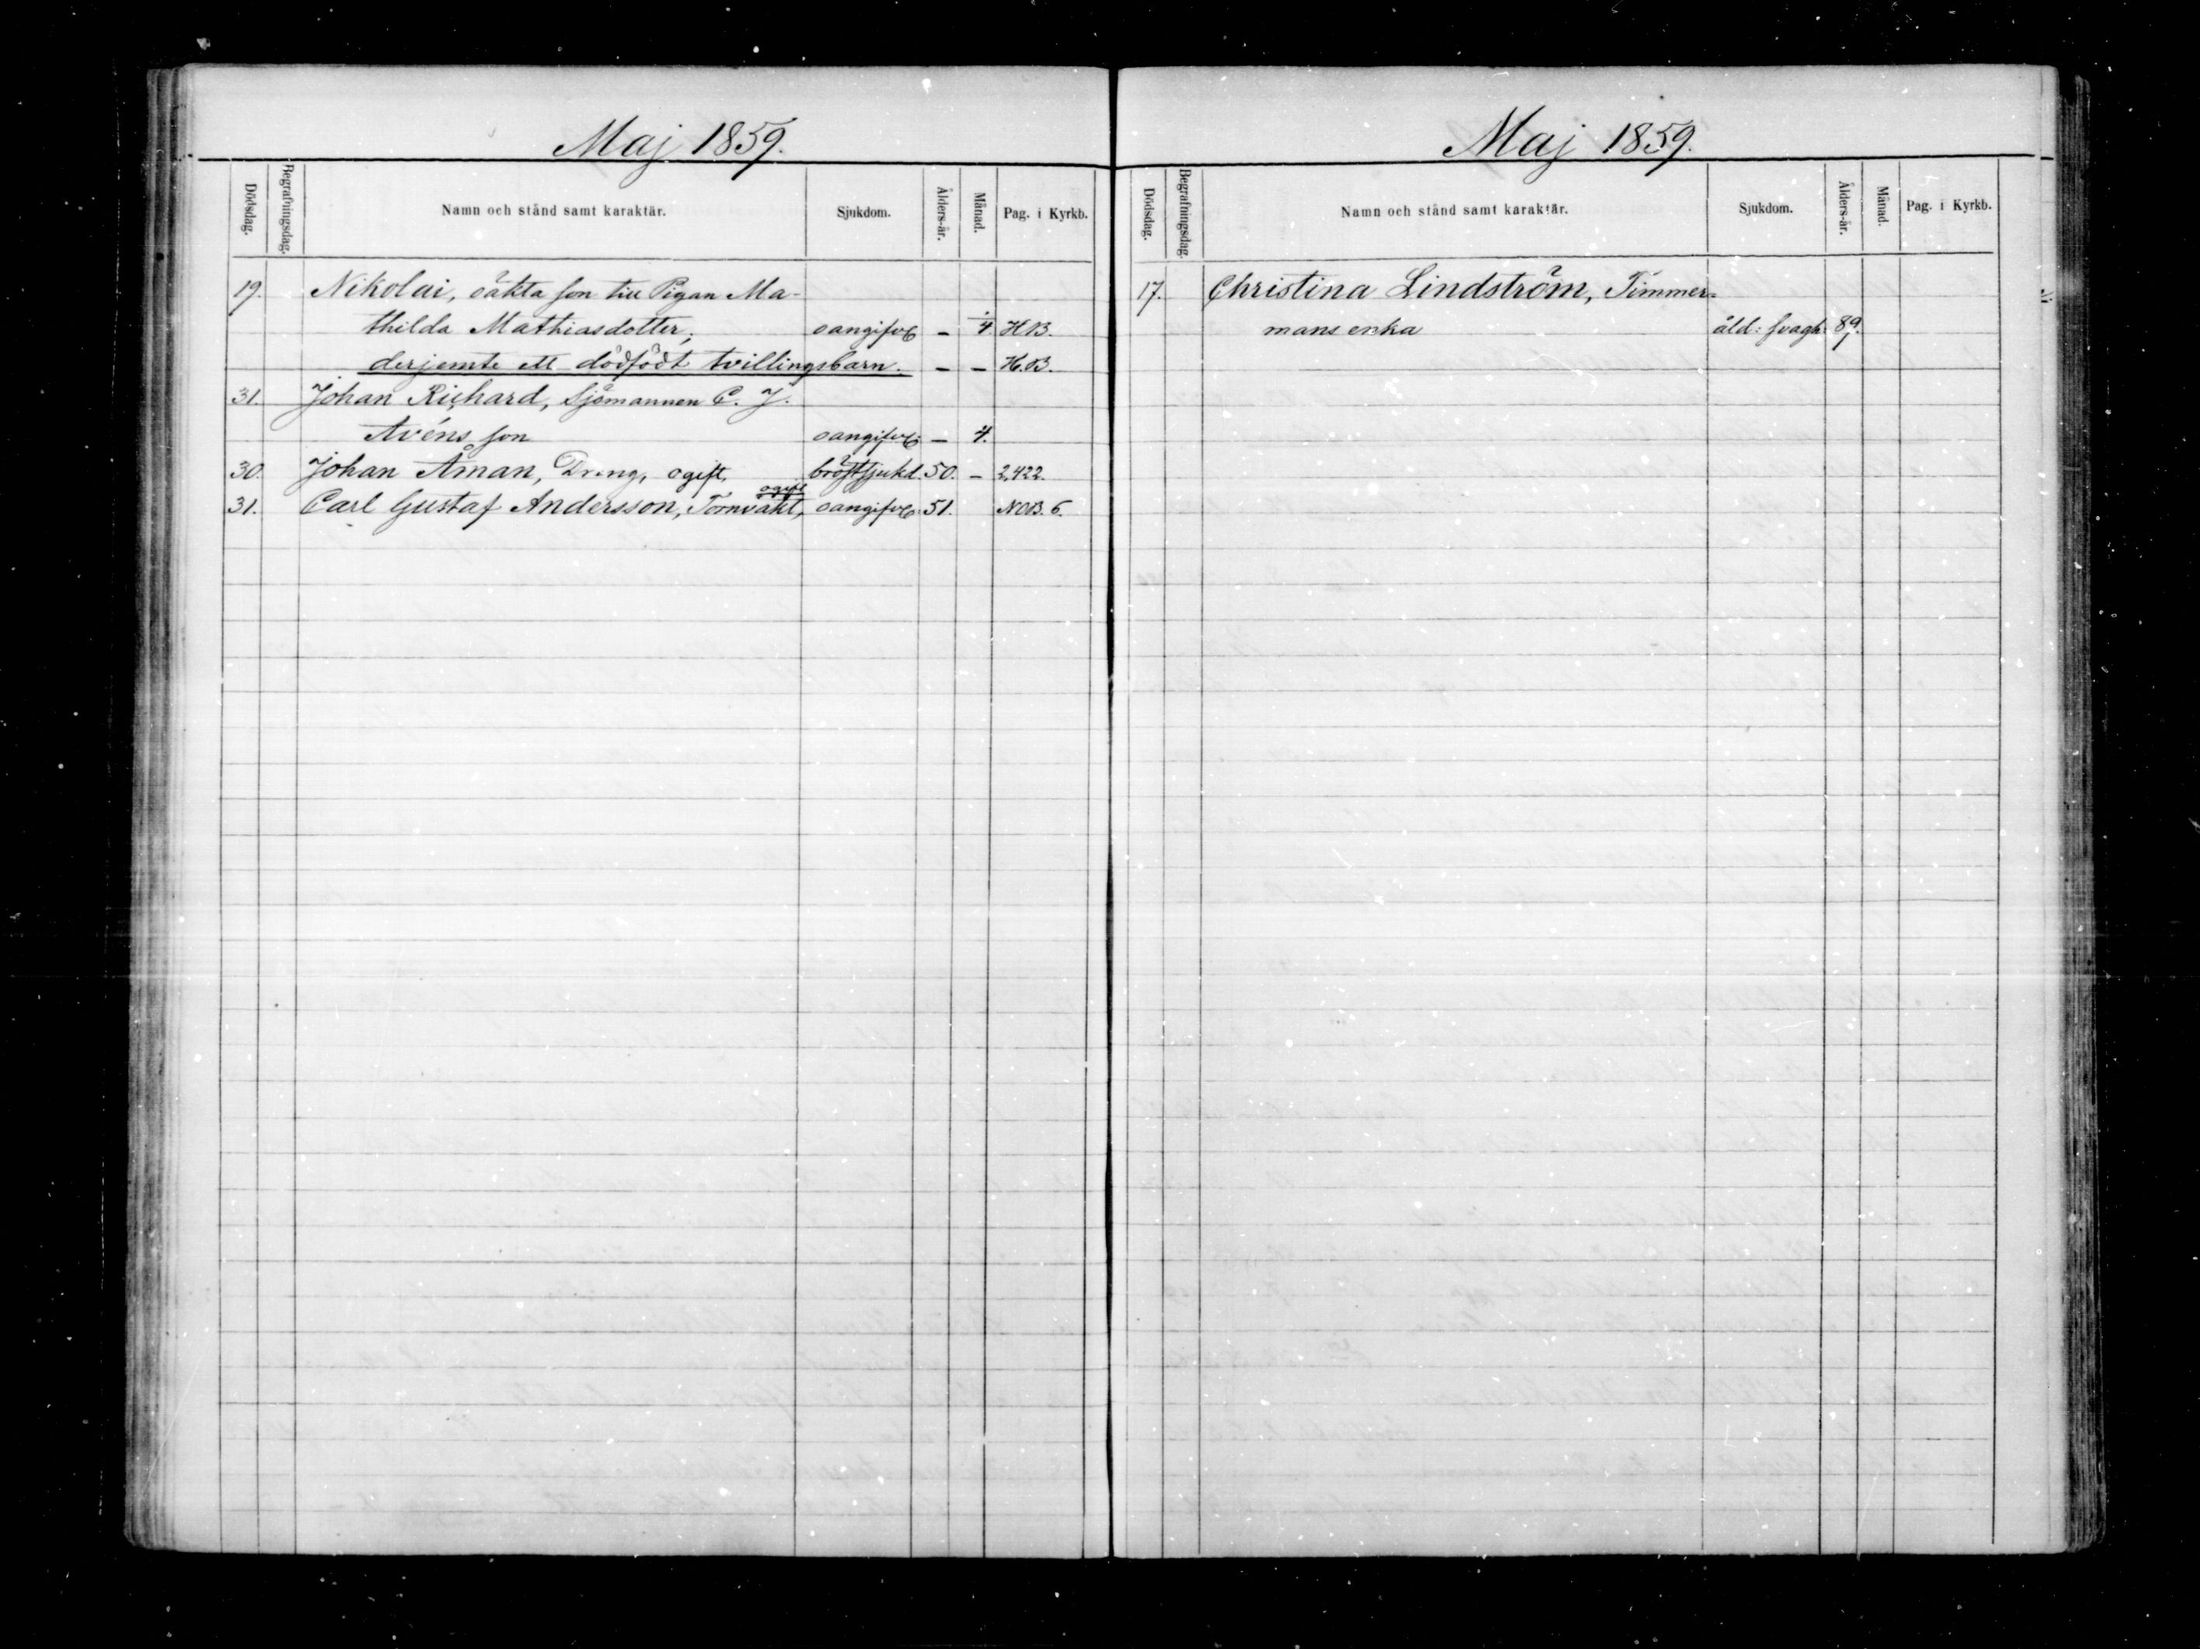 Maj 1859.
Dödsdag. Begrafningsdag. Namn och stånd samt karaktär. Sjukdom. Ålders-år. Månad. Pag. i Kyrkb.
19. Nikolai, oäkta son till Pigan Ma-
thilda Mathiasdotter, oangifv. – 4. HB.
derjemte ett dödfödt tvillingsbarn. – – H.B.
31. Johan Richard, Sjömannen C. J.
Avéns son oangifv. – 4.
30. Johan Åman, Dreng, ogift, bröstsjukd. 50. – 2,422.
ogift
31. Carl Gustaf Andersson, Tornvakt, oangifv. 51. NOB. 6.
Maj 1859.
Dödsdag. Begrafningsdag. Namn och stånd samt karaktär. Sjukdom. Ålders-år. Månad. Pag. i Kyrkb.
17. Christina Lindström, Timmer=
mans enka åld: svagh: 89.